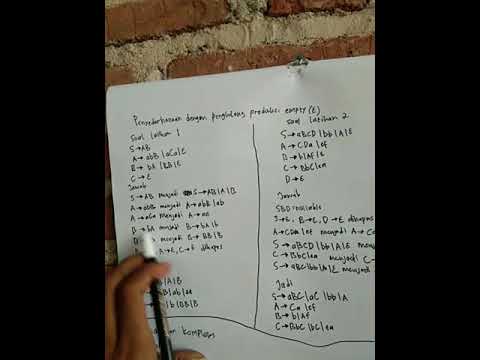 Penyederhanaan dengan penghilang produksi empty (ε)
Soal latihan 1
S → AB
A → abB | aCa | ε
B → bA | BB | ε
C → ε
Jawab
S → AB menjadi S → AB | A | B
A → abB menjadi A → abB | ab
A → aCa menjadi A → aa
B → bA menjadi B → bA | b
menjadi B → BB | B
A → ε, C → ε dihapus
| A | B
| ab | aa
| b | BB | B
Soal latihan 2
S → aBCD | bb | A | ε
A → CDa | ef
B → b | AF | ε
C → BbC | ea
D → ε
Jawab
SBD = nullable
S → ε, B → ε, D → ε dihapus
A → CDa | ef menjadi A → Ca
S → aBCD | bb | A | ε menjadi
C → BbC | ea menjadi C →
S → aBC | bb | A | ε menjadi
Jadi
S → aBC | aC | bb | A
A → Ca | ef
B → b | AF
C → BbC | bC | ea
kompleks